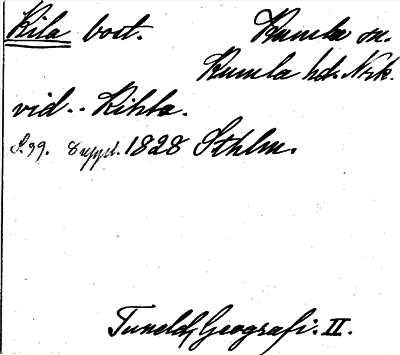 Kila bort. Kumla sn.
Kumla hd. Nrk.
vid - Kihla.
S. 99. 8 uppl. 1828 Sthlm.
Tuneld, Geografi. II.